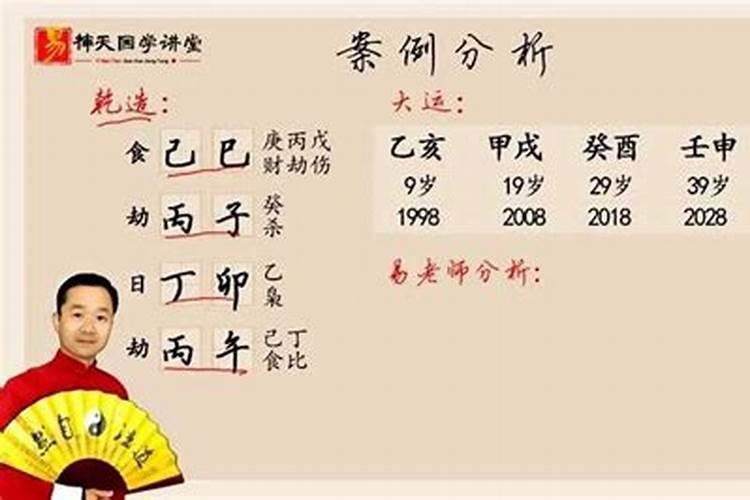 易
神天国学讲堂
案例分析
乾造：
大运：
食 己 巳 庚 丙 戊
财 劫 伤
劫 丙 子 癸
杀
日 丁 卯 乙
枭
劫 丙 午 己 丁
食 比
乙亥 甲戌 癸酉 壬申
9岁 19岁 29岁 39岁
1998 2008 2018 2028
易老师分析：
道法自然